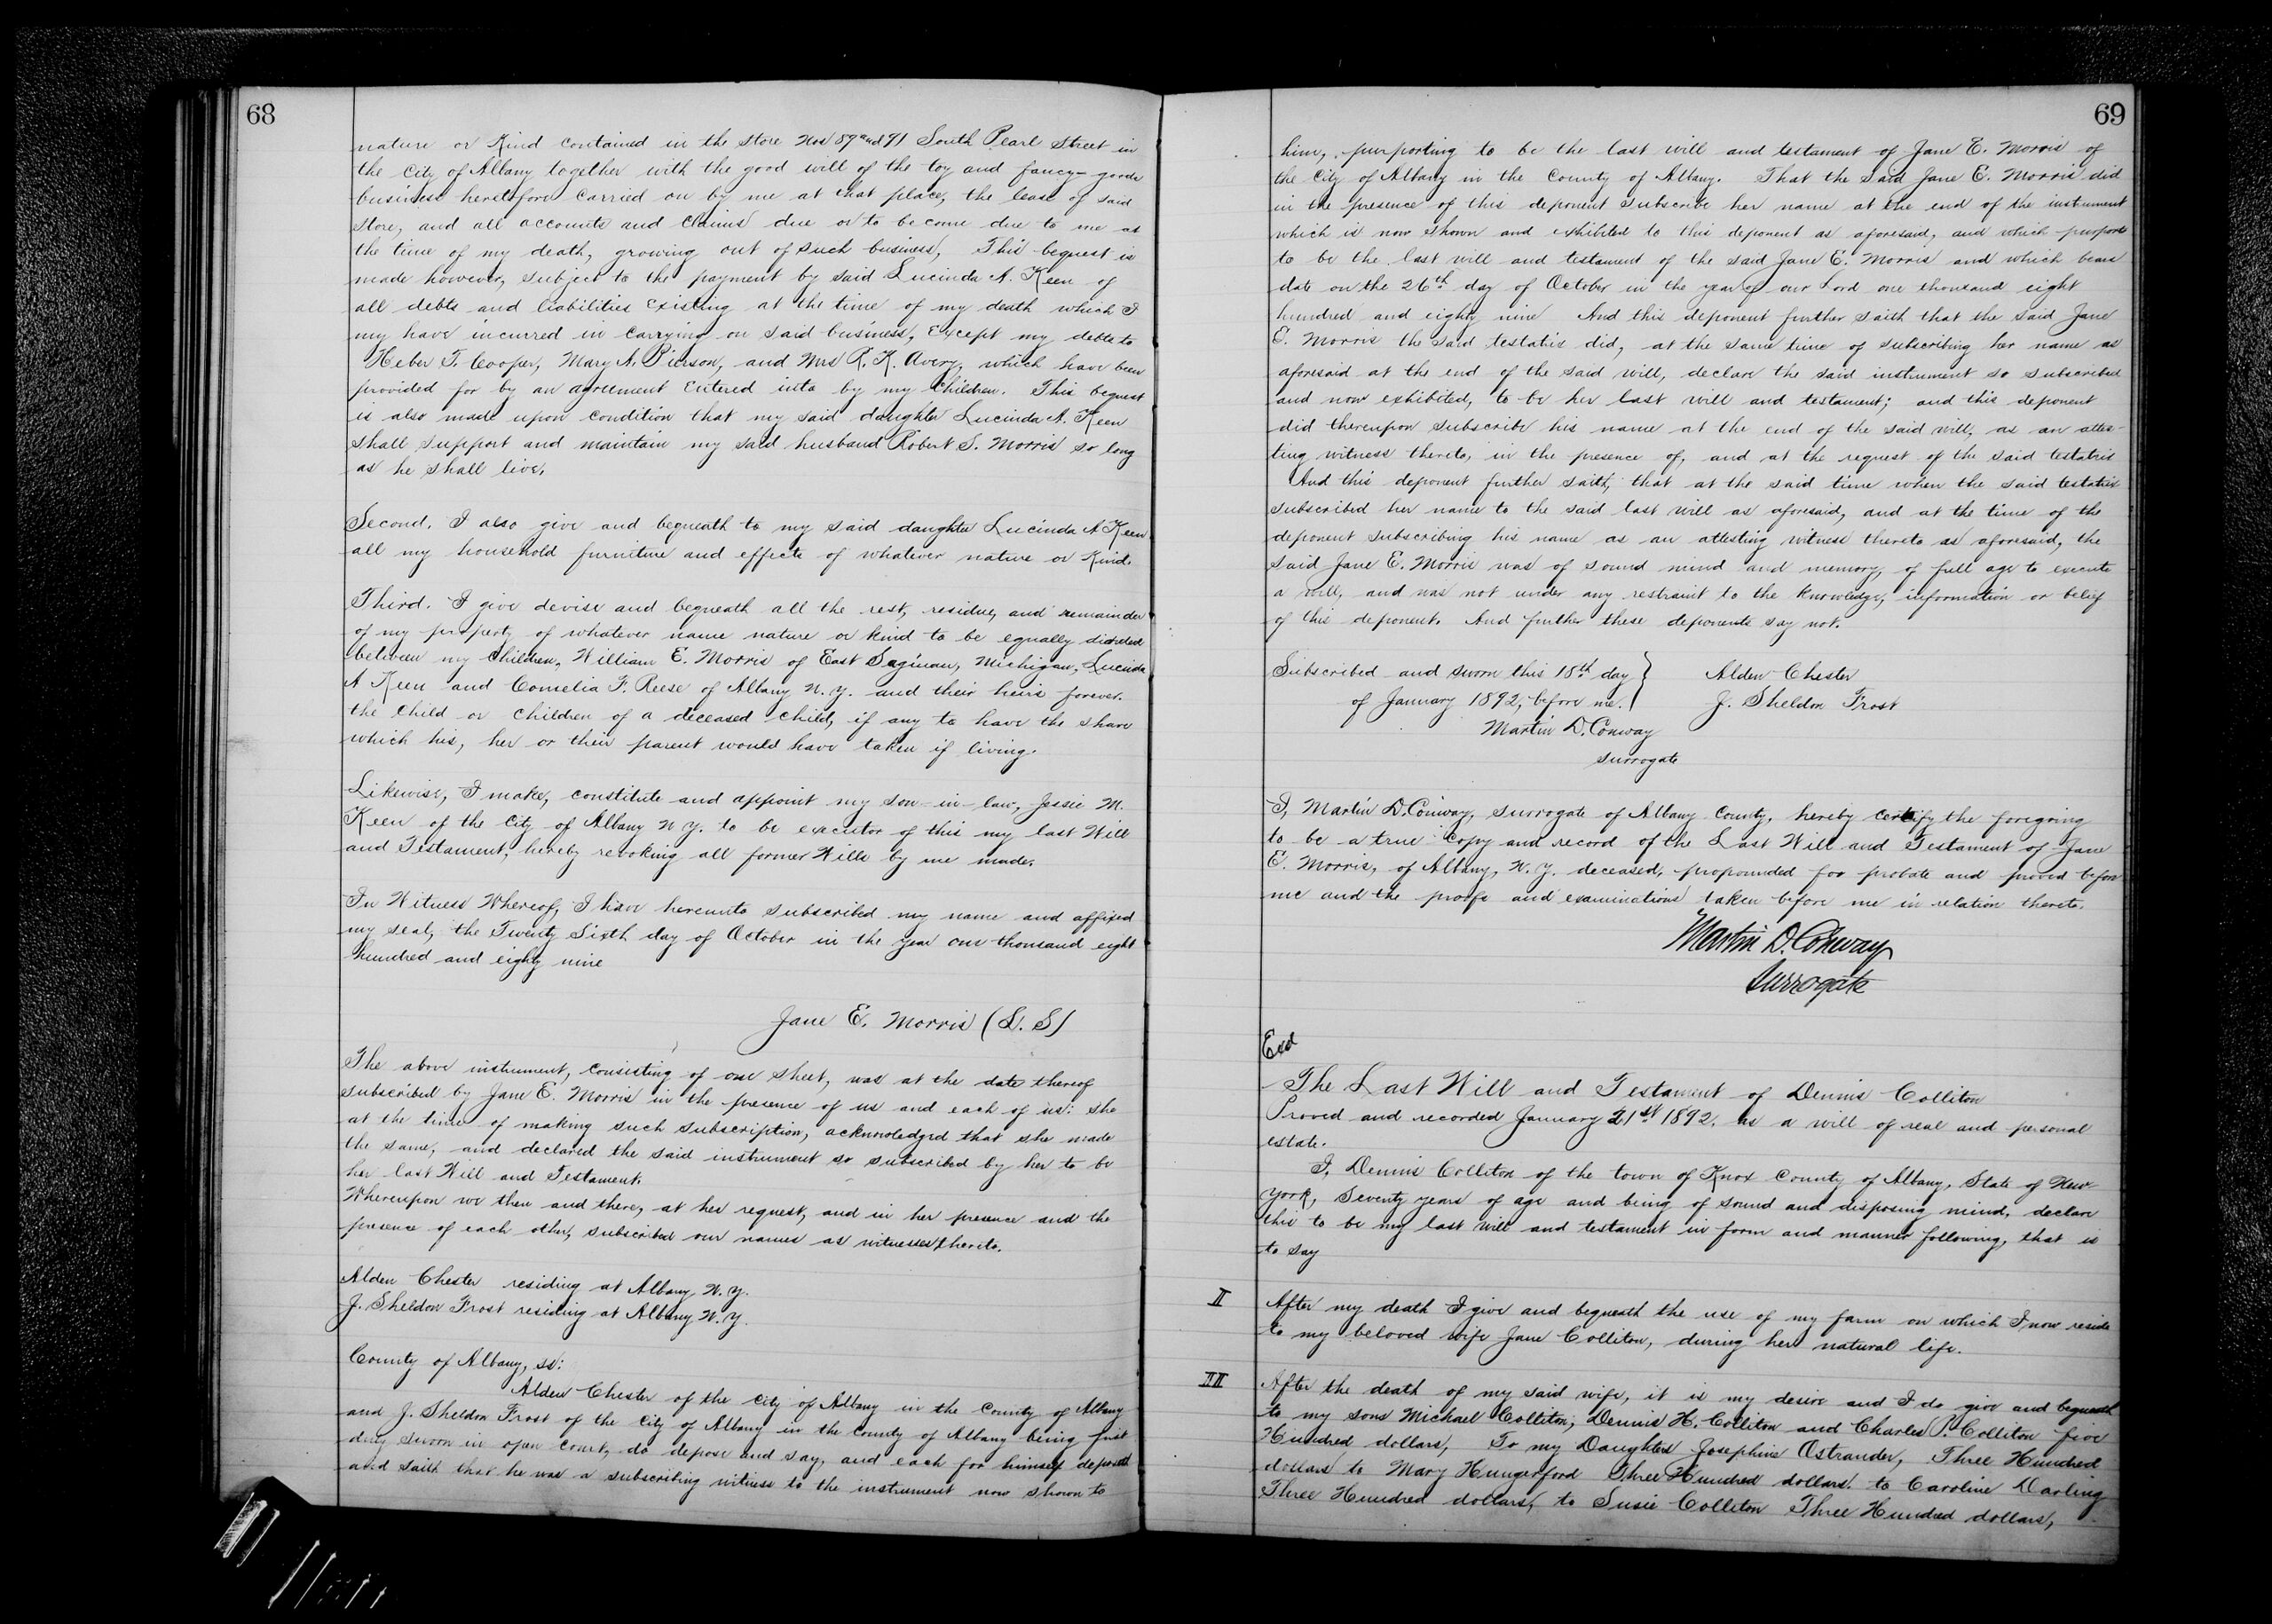 68
nature or Kind contained in the store Nos 89 and 91 South Pearl Street in
the City of Albany together with the good will of the toy and fancy-goods
business heretofore carried on by me at that place, the lease of said
store, and all accounts and claims due or to become due to me at
the time of my death, growing out of such business, This bequest is
made however, subject to the payment by said Lucinda A. Keen of
all debts and liabilities existing at the time of my death which I
my have incurred in carrying on said business, Except my debts to
Heber T. Cooper, Mary A. Pierson, and Mrs R. K. Avery, which have been
provided for by an agreement entered into by my children. This bequest
is also made upon condition that my said daughter Lucinda A. Keen
shall support and maintain my said husband Robert S. Morris so long
as he shall live.
Second. I also give and bequeath to my said daughter Lucinda A Keen
all my household furniture and effects of whatever nature or Kind.
Third. I give devise and bequeath all the rest, residue, and remainder
of my property of whatever name nature or kind to be equally divided
between my children, William E. Morris of East Saginaw, Michigan, Lucinda
A Keen and Cornelia F. Reese of Albany N.Y. and their heirs forever.
the child or children of a deceased child, if any to have the share
which his, her or their parent would have taken if living.
Likewise, I make, constitute and appoint my son-in-law, Jessie M.
Keen of the City of Albany N Y. to be executor of this my last Will
and Testament, hereby revoking all former Wills by me made.
In Witness Whereof, I have hereunto subscribed my name and affixed
my seal, the Twenty Sixth day of October in the year one thousand eight
hundred and eighty nine
Jane E. Morris (L. S)
The above instrument, consisting of one sheet, was at the date thereof
subscribed by Jane E. Morris in the presence of us and each of us: she
at the time of making such subscription, acknowledged that she made
the same, and declared the said instrument so subscribed by her to be
her last Will and Testament.
Whereupon we then and there, at her request, and in her presence and the
presence of each other, subscribed our names as witnesses thereto.
Alden Chester residing at Albany N.Y.
J. Sheldon Frost residing at Albany N.Y.
County of Albany, ss:
Alden Chester of the City of Albany in the County of Albany
and J. Sheldon Frost of the City of Albany in the County of Albany being first
duly sworn in open court, do depose and say, and each for himself deposeth
and saith that he was a subscribing witness to the instrument now shown to
69
him, purporting to be the last will and testament of Jane E. Morris of
the City of Albany in the County of Albany. That the said Jane E. Morris did
in the presence of this deponent subscribe her name at the end of the instrument
which is now shown and exhibited to this deponent as aforesaid, and which purports
to be the last will and testament of the said Jane E. Morris and which bears
date on the 26th day of October in the year of our Lord one thousand eight
hundred and eighty nine And this deponent further saith that the said Jane
E. Morris the said testatrix did, at the same time of subscribing her name as
aforesaid at the end of the said will, declare the said instrument so subscribed
and now exhibited, to be her last will and testament; and this deponent
did thereupon subscribe his name at the end of the said will, as an attes-
ting witness thereto, in the presence of, and at the request of the said testatrix
And this deponent further saith, that at the said time when the said testatrix
subscribed her name to the said last will as aforesaid, and at the time of the
deponent subscribing his name as an attesting witness thereto as aforesaid, the
said Jane E. Morris was of sound mind and memory, of full age to execute
a will, and was not under any restraint to the knowledge, information or belief
of this deponent. And further these deponents say not.
Subscribed and sworn this 18th day } Alden Chester
of January 1892, before me. J. Sheldon Frost
Martin D. Conway
Surrogate
I, Martin D. Conway, Surrogate of Albany County, hereby certify the foregoing
to be a true copy and record of the Last Will and Testament of Jane
E. Morris, of Albany, N.Y. deceased, propounded for probate and proved before
me and the proofs and examinations taken before me in relation thereto.
Martin D. Conway
Surrogate
Exd
The Last Will and Testament of Dennis Colliton
Proved and recorded January 21st 1892. as a will of real and personal
estate.
I, Dennis Colliton of the town of Knox County of Albany, State of New
York, Seventy years of age and being of sound and disposing mind, declare
this to be my last will and testament in form and manner following, that is
to say
II After my death I give and bequeath the use of my farm on which I now reside
to my beloved wife Jane Colliton, during her natural life.
III After the death of my said wife, it is my desire and I do give and bequeath
to my sons Michael Colliton, Dennis H. Colliton and Charles P. Colliton five
Hundred dollars, To my Daughters Josephine Ostrander, Three Hundred
dollars to Mary Hungerford Three Hundred dollars. to Caroline Darling
Three Hundred dollars, to Susie Colliton Three Hundred dollars,